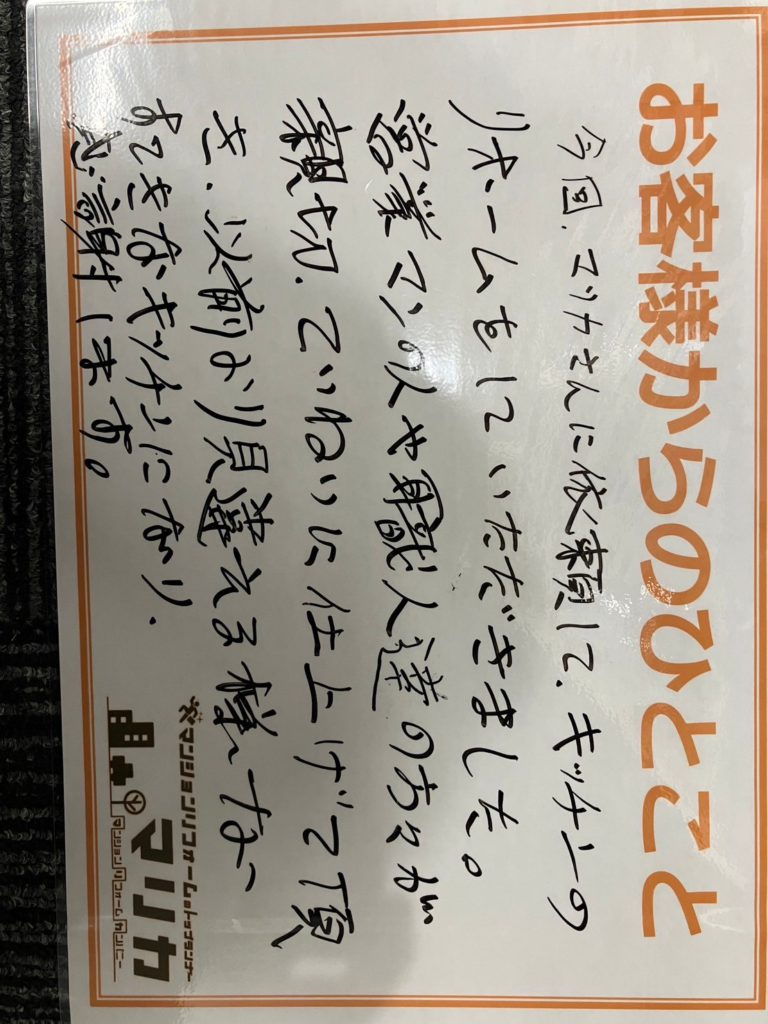 お客様からのひとこと
今回、マリカさんに依頼して、キッチンの
リホームをしていただきました。
営業マンの人や職人達の方々が
親切、ていねいに仕上げて頂
き、以前より見違える様な
すてきなキッチンになり、
感謝します。
マンションリフォームのトップランナー
マリカ
マンションリフォームカンパニー